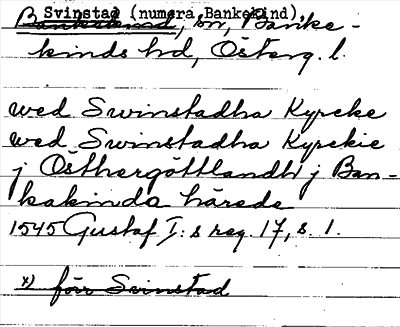 Svinstad (numera Bankekind)
Bankekind, sn, Banke-
kinds hd, Österg. l.
wed Swinstadha Kyrcke
wed Swinstadha Kyrckie
j Östhergöttlandh j Ban-
kakinda härede
1545 Gustaf I:s reg. 17, s. 1.
x) förr Svinstad